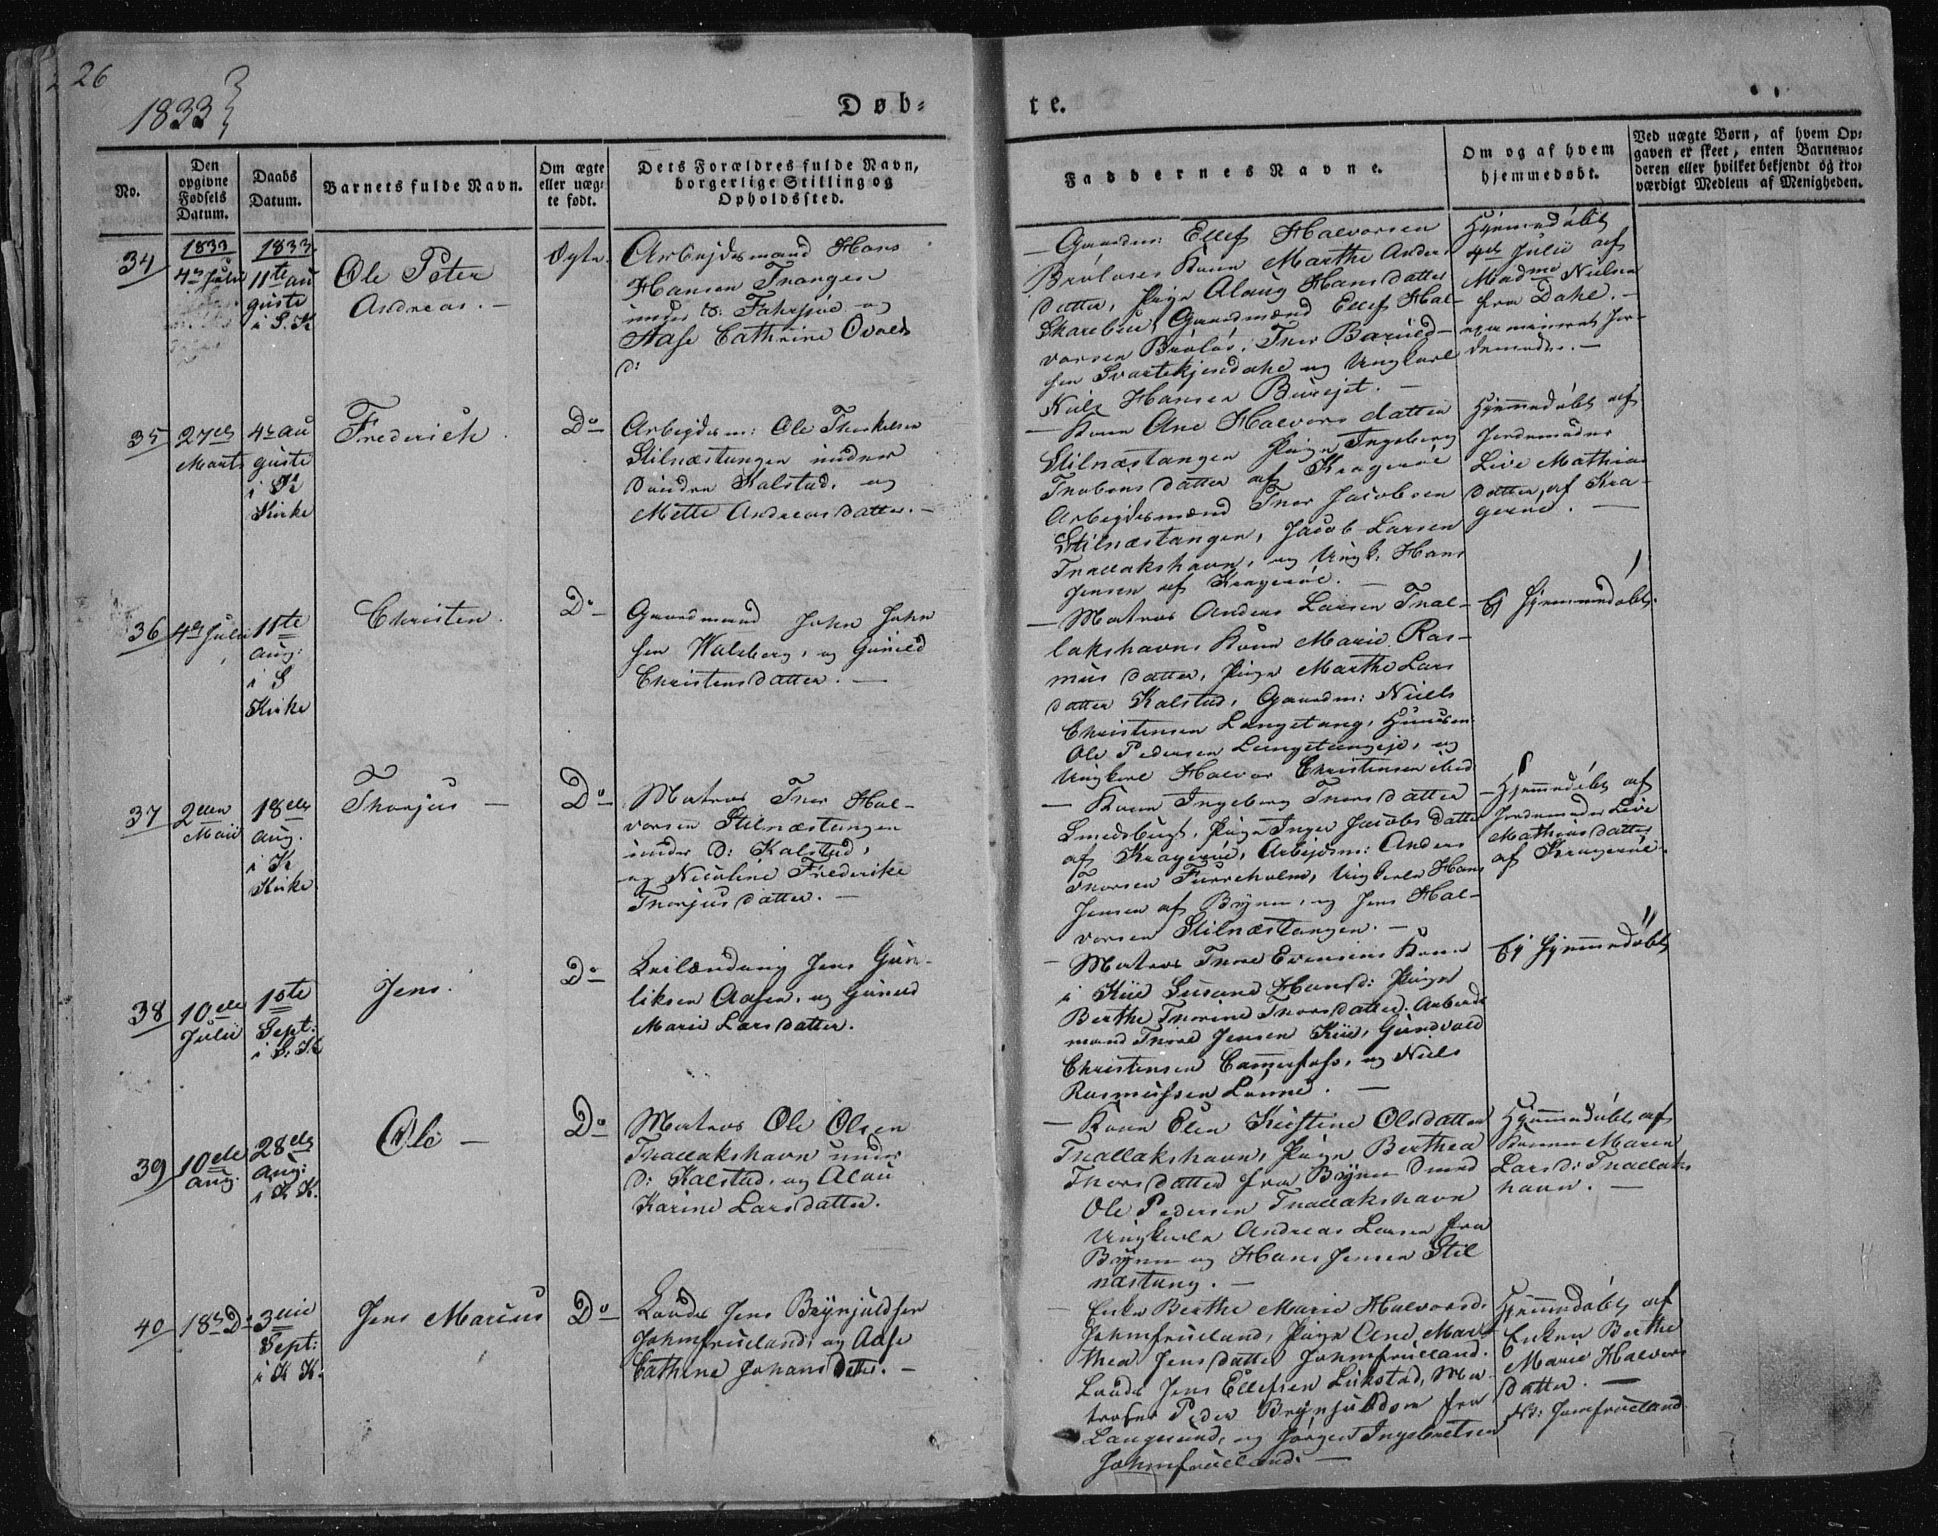 26
1833
Døb=
te.
No.
Den opgivne Fødsels Datum.
Daabs Datum.
Barnets fulde Navn.
Om ægte eller uægte født.
Dets Forældres fulde Navn, borgerlige Stilling og Opholdssted.
Faddernes Navne.
Om og af hvem hjemmedøbt.
Ved uægte Børn, af hvem Op=
gaven er skeet, enten Barnemo=
deren eller hvilket bekjendt og tro=
værdigt Medlem af Menigheden.
34
1833
4de Julii
1833
11te au
guste
i S. K
Ole Peter
Andreas. —
Ægte.
Arbejdsmand Hans
Hansen Trangen
under D: Fahrsjøe og
Aase Cathrine Oveds
d:
— Gaardm: Ellef Halvorsen
Brøløses Kone Marthe Anders
datter, Pige Alaug Hansdatter
Skarebue, Gaardmænd Ellef Hal-
vorsen Brøløs, Thor Baruld-
sen Svartekjendahl og Ungkarl
Niels Hansen Burejet. —
Hjemmedøbt
4de Julii af
Madme Nielsen
fra Dahl. —
examineret Jor-
demoder. —
35
27de
Marts
4de au
guste
i K
Kirke
Frederich
Do
Arbejdsm: Ole Therkelsen
Stilnæstangen under
Søndre Kalstad, og
Mette Andreasdatter. —
— Kone Ane Halvorsdatter
Stilnæstangen Pige Ingeborg
Jacobsdatter af Kragerøe
Arbejdsmænd Thor Jacobsen
Stilnæstangen, Jacob Larsen
Tnallakshavn, og Ungk: Hans
Jensen af Kragerøe. —
Hjemmedøbt af
Jordemoder
Live Mathias
datter, af Kra-
gerøe. —
36
4de Julii
11te
aug:
i S
Kirke
Christen.
Do
Gaardmand John John
sen Walberg, og Gunild
Christensdatter. —
— Matros Anders Larsen Tnal-
lakshavns Kone Marie Ras-
mus datter, Pige Marthe Lars
datter Kalstad, Gaardm: Niels
Christensen Langetang, Huusm
Ole Pedersen Langetangeje, og
Ungkarl Halvor Christensen ibid
Ej Hjemmedøbt.
37
2den
Maii
18de
aug.
i K
Kirke
Thorjus —
Do
Matros Thor Hal-
vorsen Stilnæstangen
under D: Kalstad,
og Nicoline Frederike
Thorjusdatter. —
— Kone Ingeborg Thorsdatter
Smedsbugt, Pige Inger Jacobsdatter
af Kragerøe, Arbejdsm: Anders
Thorsen Furreholm, Ungkarle Hans
Jensen af Byen, og Jens Hal-
vorsen Stilnæstangen. —
— Hjemmedøbt af
Jordemoder Live
Mathiasdatter
af Kragerøe.
38
10de
Julii
1ste
Sept:
i S. K
Jens.
Do
Leilænding Jens Gun-
liksen Aasen, og Gunild
Marie Larsdatter.
— Matros Thore Evensens Kone
i Kiil Susane Hansd: Pige
Berthe Thorine Thorsdatter. Arbeids
mænd Thore Jensen Kiil, Gundvald
Christensen Cammerfoss, og Niels
Rasmussen Lønne. —
Ej Hjemmedøbt
39
10de
Aug.
28de
Aug:
i K K.
Ole —
Do
Matros Ole Olsen
Tnallakshavn under
D: Kalstad, og Alau
Karine Larsdatter.
— Kone Elen Kirstine Olsdatter
Tnallakshavn, Pige Berthea
Thorsdatter fra Byen Smed
Ole Pedersen Tnallakshavn
Ungkarle Andreas Larsen fra
Byen og Hans Jensen Stil
næstang. —
Hjemmedøbt af
Konen Maren
Larsd: Tnallaks
havn. —
40
18de Do
3die
Sept:
i K K.
Jens Marius
Do
Louds Jens Brynjuldsen
Johmfrueland, og Aase
Cathrine Johansdatter. —
— Enke Berthe Marie Halvorsd.
Johmfrueland, Pige Ane Mar-
thea Jensdatter Johmfrueland.
Louds Jens Ellefsen Lukstad, Ma-
troser Peder Brynjuldsen fra
Langesund, og Jørgen Ingebretsen
Johmfrueland. —
Hjemmedøbt af
Enken Berthe
Marie Halvors
datter. —
Jomfrueland